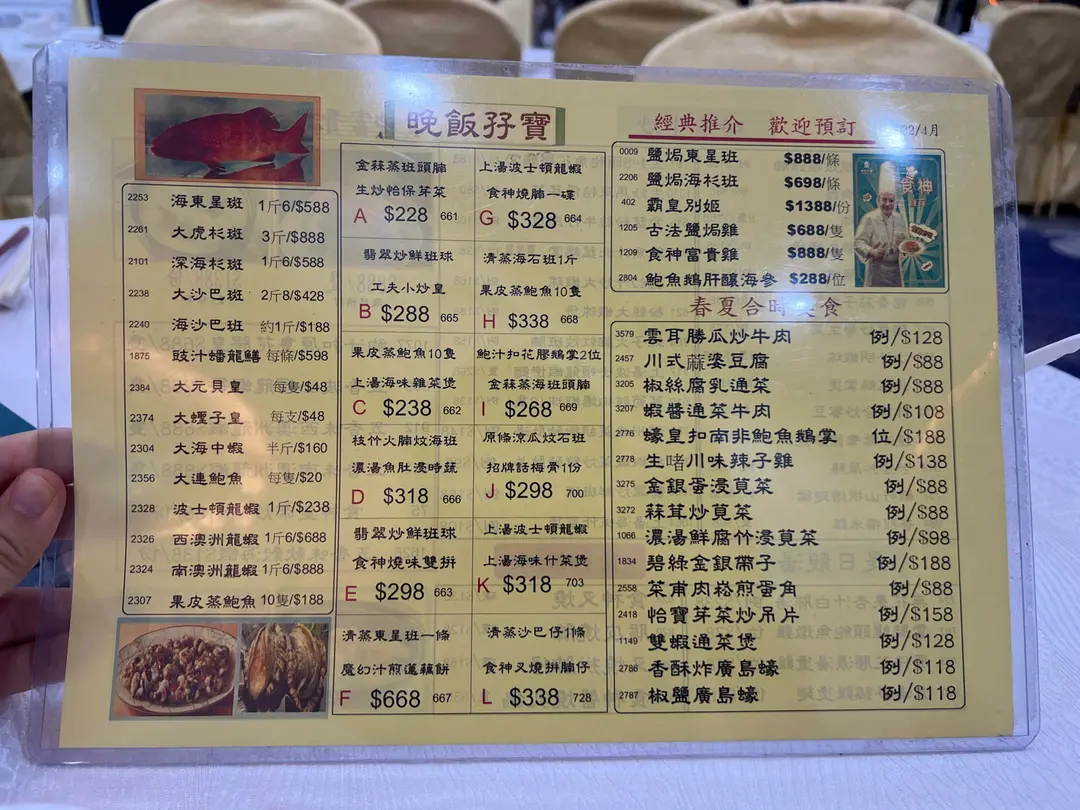 晚飯孖寶
2253 海東星斑 1斤6/$588
2261 大虎杉斑 3斤/$888
2101 深海杉斑 1斤6/$588
2238 大沙巴斑 2斤8/$428
2240 海沙巴斑 約1斤/$188
1875 豉汁蟠龍鱔 每條/$598
2384 大元貝皇 每隻/$48
2374 大蟶子皇 每支/$48
2304 大海中蝦 半斤/$160
2356 大連鮑魚 每隻/$20
2328 波士頓龍蝦 1斤/$238
2326 西澳洲龍蝦 1斤6/$688
2324 南澳洲龍蝦 1斤6/$888
2307 果皮蒸鮑魚 10隻/$188
金蒜蒸班頭腩
生炒怡保芽菜
A $228 661
翡翠炒鮮班球
工夫小炒皇
B $288 665
果皮蒸鮑魚10隻
上湯海味雜菜煲
C $238 662
枝竹火腩炆海班
濃湯魚肚浸時蔬
D $318 666
翡翠炒鮮班球
食神燒味雙拼
E $298 663
清蒸東星班一條
魔幻汁煎蓮藕餅
F $668 667
上湯波士頓龍蝦
食神燒腩一碟
G $328 664
清蒸海石班1斤
果皮蒸鮑魚10隻
H $338 668
鮑汁扣花膠鵝掌2位
金蒜蒸海班頭腩
I $268 669
原條涼瓜炆石班
招牌話梅骨1份
J $298 700
上湯波士頓龍蝦
上湯海味什菜煲
K $318 703
清蒸沙巴仔1條
食神叉燒拼腩仔
L $338 728
經典推介 歡迎預訂 22/4月
0009 鹽焗東星班 $888/條
2206 鹽焗海杉班 $698/條
402 霸皇別姬 $1388/份
1205 古法鹽焗雞 $688/隻
1209 食神富貴雞 $888/隻
2804 鮑魚鵝肝釀海參 $288/位
食神
春夏合時美食
3579 雲耳勝瓜炒牛肉 例/$128
2457 川式蔴婆豆腐 例/$88
3205 椒絲腐乳通菜 例/$88
3207 蝦醬通菜牛肉 例/$108
2776 蠔皇扣南非鮑魚鵝掌 位/$188
2778 生啫川味辣子雞 例/$138
3275 金銀蛋浸莧菜 例/$88
3272 蒜茸炒莧菜 例/$88
1066 濃湯鮮腐竹浸莧菜 例/$98
1834 碧綠金銀帶子 例/$188
2558 菜甫肉崧煎蛋角 例/$88
2418 怡寶芽菜炒吊片 例/$158
1149 雙蝦通菜煲 例/$128
2786 香酥炸廣島蠔 例/$118
2787 椒鹽廣島蠔 例/$118